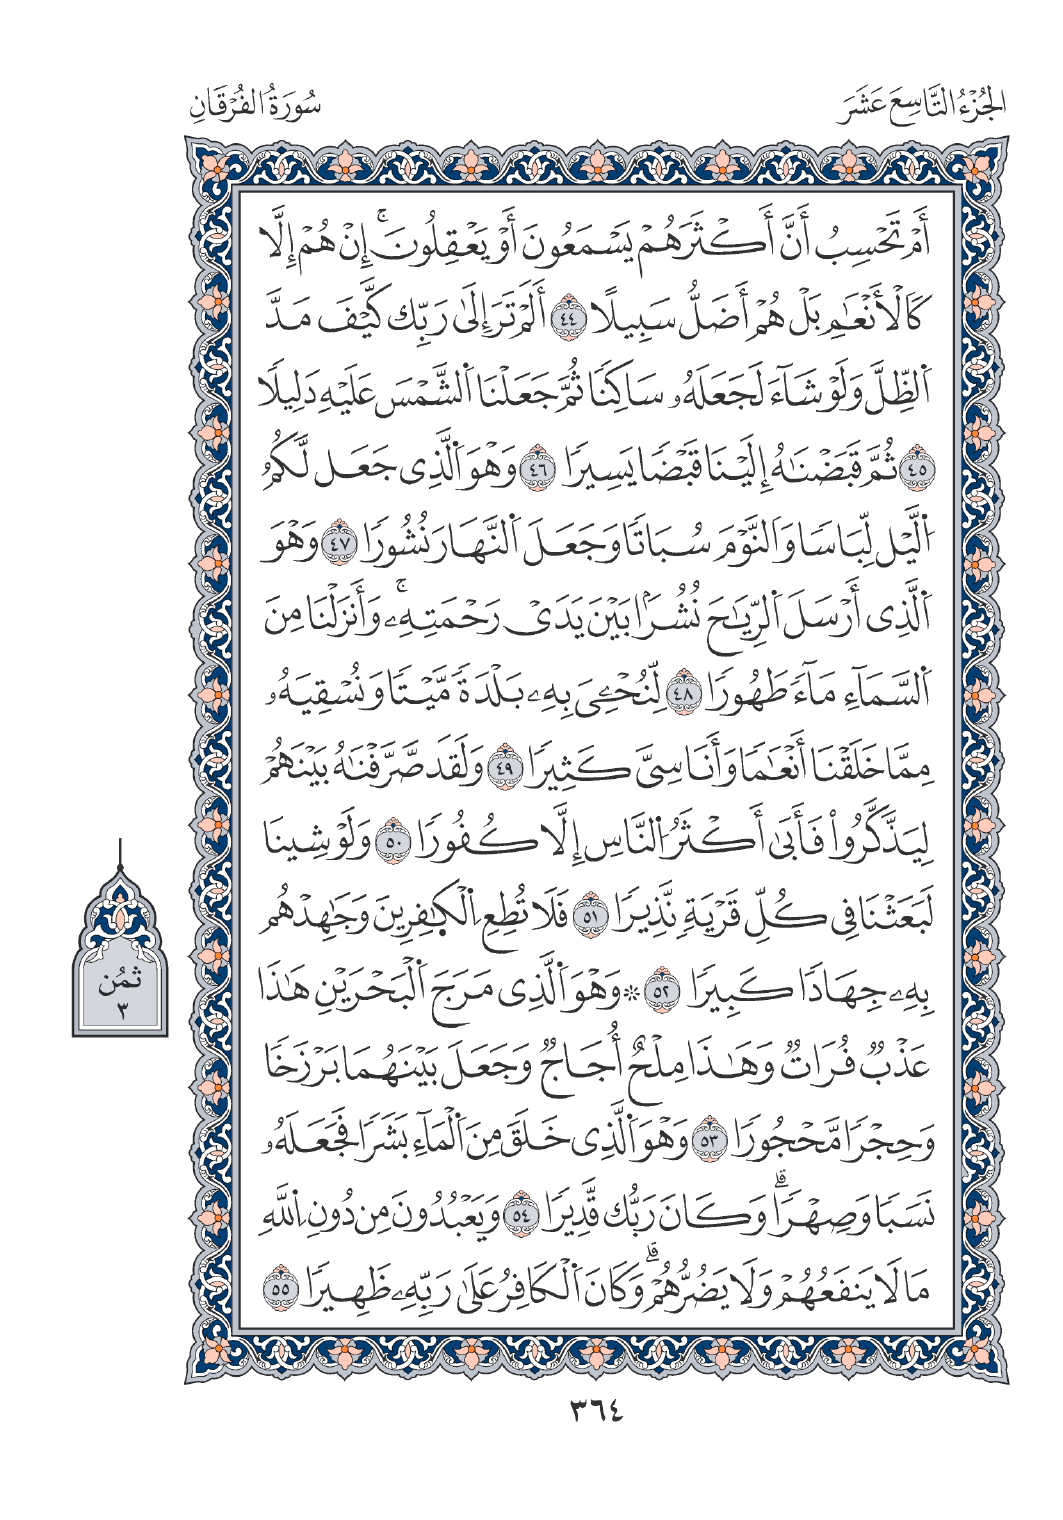 الجُزْءُ التَّاسِعَ عَشَرَ
سُورَةُ الفُرْقَانِ
أَمْ تَحْسِبُ أَنَّ أَكْثَرَهُمْ يَسْمَعُونَ أَوْ يَعْقِلُونَۚ إِنْ هُمْ إِلَّا
كَالْأَنْعَٰمِ بَلْ هُمْ أَضَلُّ سَبِيلًا ٤٤ أَلَمْ تَرَ إِلَىٰ رَبِّك كَّيْفَ مَدَّ
اَلظِّلَّ وَلَوْ شَآءَ لَجَعَلَهُۥ سَاكِنٗا ثُمَّ جَعَلْنَا اَلشَّمْسَ عَلَيْهِ دَلِيلٗا
٤٥ ثُمَّ قَبَضْنَٰهُ إِلَيْنَا قَبْضٗا يَسِيرٗا ٤٦ وَهْوَ اَلَّذِى جَعَل لَّكُمُ
اُلَّيْل لِّبَاسٗا وَاَلنَّوْمَ سُبَاتٗا وَجَعَلَ اَلنَّهَارَ نُشُورٗا ٤٧ وَهْوَ
اَلَّذِى أَرْسَلَ اَلرِّيَٰحَ نُشُرَۢا بَيْنَ يَدَىْ رَحْمَتِهِۦۚ وَأَنزَلْنَا مِنَ
اَلسَّمَآءِ مَآءٗ طَهُورٗا ٤٨ لِّنُحْـِۧىَ بِهِۦ بَلْدَةٗ مَّيْتٗا وَنُسْقِيَهُۥ
مِمَّا خَلَقْنَا أَنْعَٰمٗا وَأَنَاسِىَّ كَثِيرٗا ٤٩ وَلَقَد صَّرَّفْنَٰهُ بَيْنَهُمْ
لِيَذَّكَّرُواْ فَأَبَىٰ أَكْثَرُ اُلنَّاسِ إِلَّا كُفُورٗا ٥٠ وَلَوْ شِينَا
لَبَعَثْنَا فِى كُلِّ قَرْيَةٖ نَّذِيرٗا ٥١ فَلَا تُطِعِ اِلْكَٰفِرِينَ وَجَٰهِدْهُم
بِهِۦ جِهَادٗا كَبِيرٗا ٥٢ ۞ وَهْوَ اَلَّذِى مَرَجَ اَلْبَحْرَيْنِ هَٰذَا
عَذْبٞ فُرَاتٞ وَهَٰذَا مِلْحٌ أُجَاجٞ وَجَعَلَ بَيْنَهُمَا بَرْزَخٗا
وَحِجْرٗا مَّحْجُورٗا ٥٣ وَهْوَ اَلَّذِى خَلَقَ مِنَ اَلْمَآءِ بَشَرٗا فَجَعَلَهُۥ
نَسَبٗا وَصِهْرٗاۗ وَكَانَ رَبُّك قَّدِيرٗا ٥٤ وَيَعْبُدُونَ مِن دُونِ اِللَّهِ
مَا لَا يَنفَعُهُمْ وَلَا يَضُرُّهُمْۗ وَكَانَ اَلْكَافِرُ عَلَىٰ رَبِّهِۦ ظَهِيرٗا ٥٥
ثُمُن
٣
٣٦٤